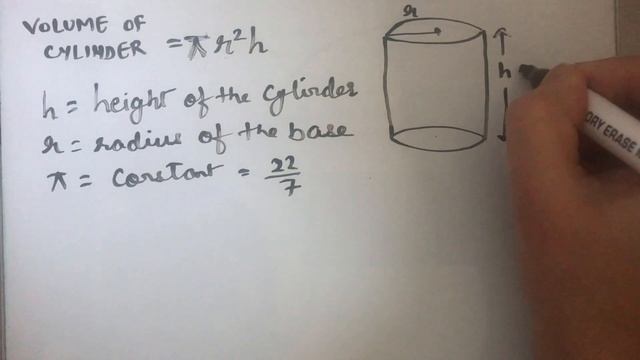 VOLUME OF
CYLINDER = π r²h
h = height of the cylinder
r = radius of the base
π = constant = 22/7
r
h
ORY ERASE